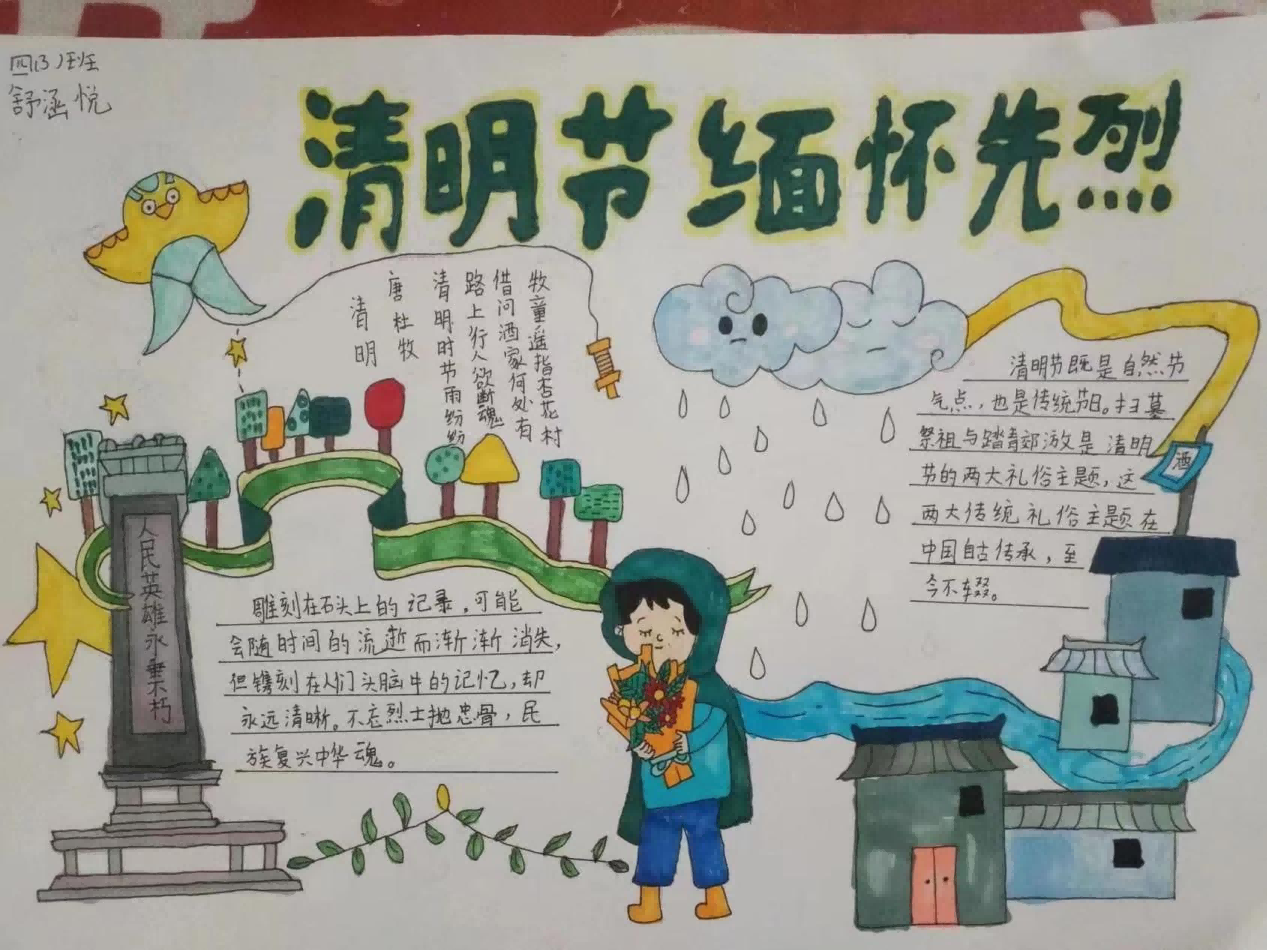 四(3)班
舒涵悦
清明节缅怀先烈
清明
唐杜牧
清明时节雨纷纷
路上行人欲断魂
借问酒家何处有
牧童遥指杏花村
清明节既是自然节
气点，也是传统节日。扫墓
祭祖与踏青郊游是清明
节的两大礼俗主题，这
两大传统礼俗主题在
中国自古传承，至
今不辍。
酒
人民英雄永垂不朽
雕刻在石头上的记录，可能
会随时间的流逝而渐渐消失，
但镌刻在人们头脑中的记忆，却
永远清晰。不忘烈士抛忠骨，民
族复兴中华魂。